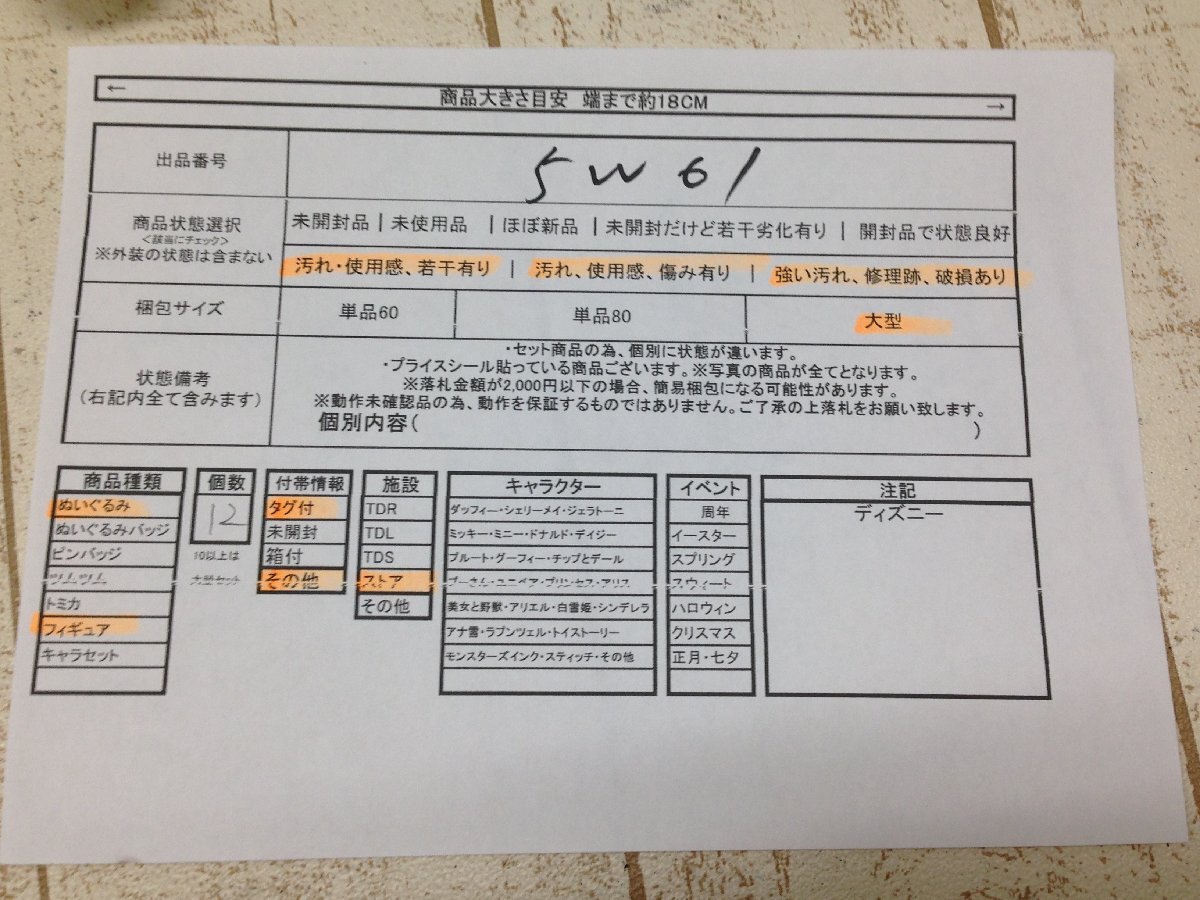 ← 商品大きさ目安 端まで約18CM →
出品番号 5W61
商品状態選択 <該当にチェック> ※外装の状態は含まない
未開封品 | 未使用品 | ほぼ新品 | 未開封だけど若干劣化有り | 開封品で状態良好
汚れ・使用感、若干有り | 汚れ、使用感、傷み有り | 強い汚れ、修理跡、破損あり
梱包サイズ 単品60 単品80 大型
状態備考
(右記内全て含みます)
・セット商品の為、個別に状態が違います。
・プライスシール貼っている商品ございます。※写真の商品が全てとなります。
※落札金額が2,000円以下の場合、簡易梱包になる可能性があります。
※動作未確認品の為、動作を保証するものではありません。ご了承の上落札をお願い致します。
個別内容( )
商品種類
ぬいぐるみ
ぬいぐるみバッジ
ピンバッジ
ツムツム
トミカ
フィギュア
キャラセット
個数
12
10以上は
大型セット
付帯情報
タグ付
未開封
箱付
その他
施設
TDR
TDL
TDS
ストア
その他
キャラクター
ダッフィー・シェリーメイ・ジェラトーニ
ミッキー・ミニー・ドナルド・デイジー
プルート・グーフィー・チップとデール
プーさん・ユニベア・プリンセス・アリス
美女と野獣・アリエル・白雪姫・シンデレラ
アナ雪・ラプンツェル・トイストーリー
モンスターズインク・スティッチ・その他
イベント
周年
イースター
スプリング
スウィート
ハロウィン
クリスマス
正月・七夕
注記
ディズニー